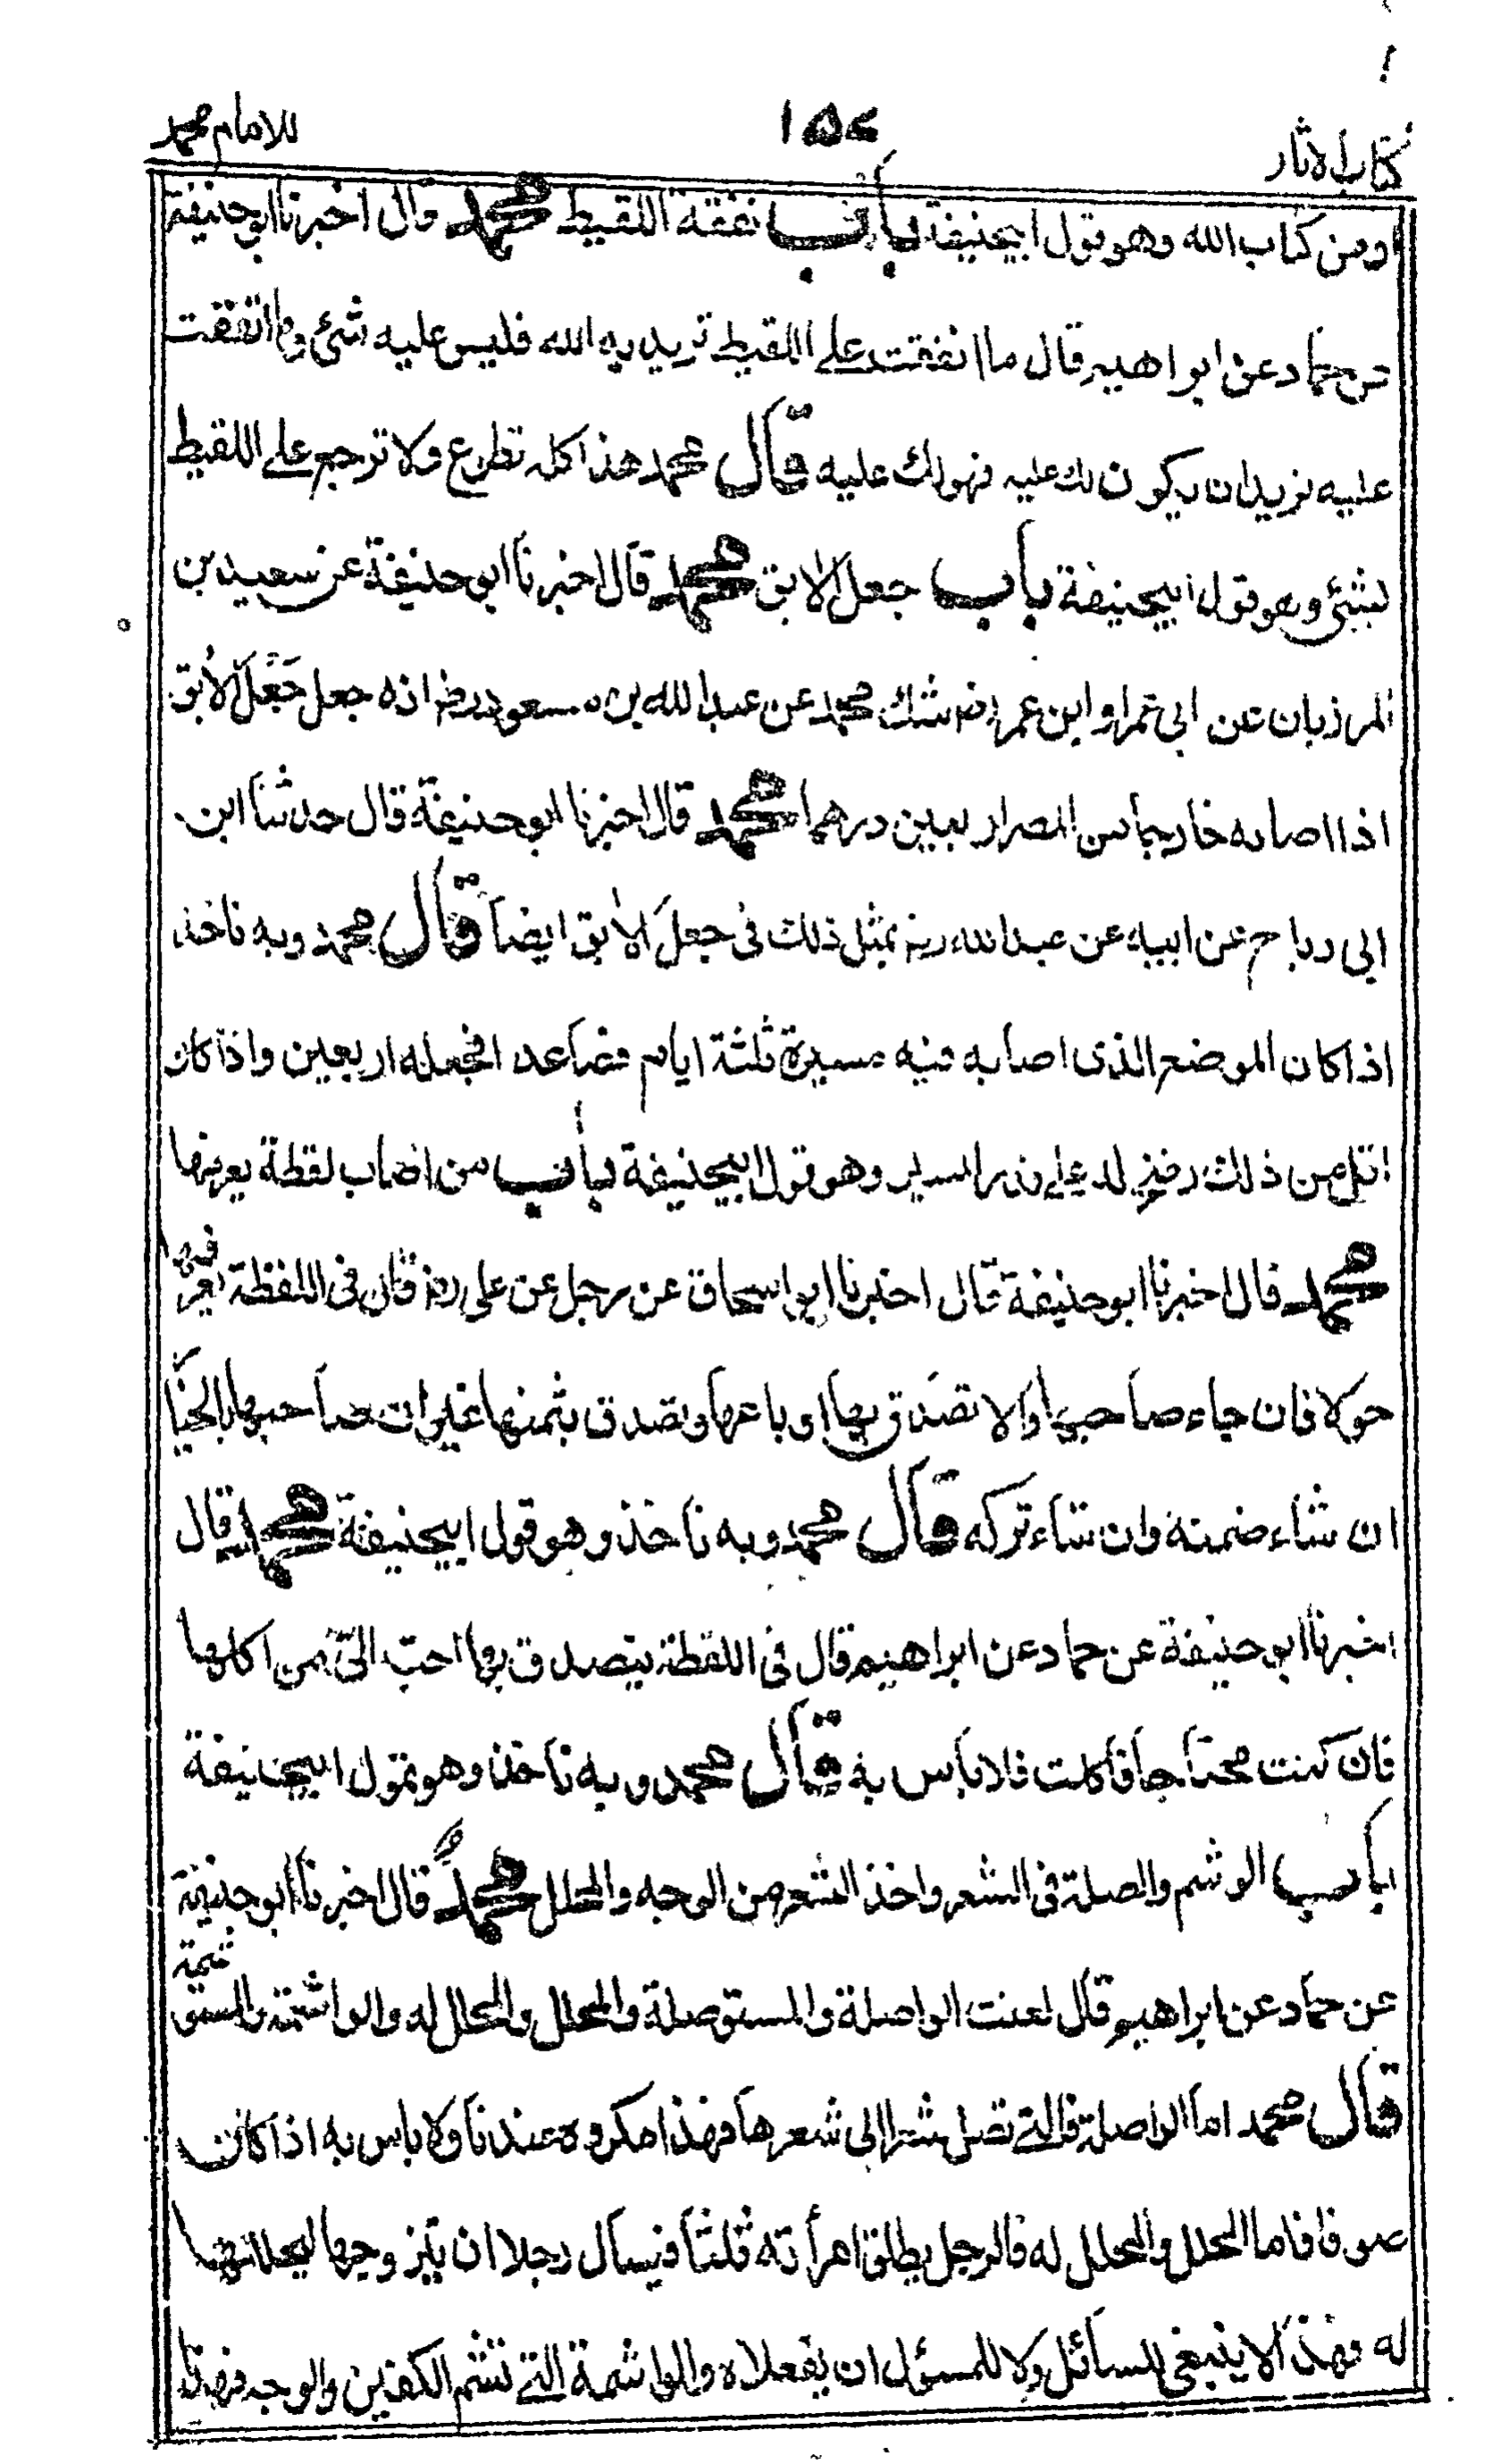 كتاب الاثار ١٥٤ للامام محمد
او من كتاب الله وهو قول ابيحنيفة باب نفقة اللقيط محمد قال اخبرنا ابو حنيفة
عن حماد عن ابراهيم قال ما انفقت على اللقيط تريد به الله فليس عليه شئ وما انفقت
عليه تريد ان يكون لك عليه فهو لك عليه قال محمد هذا كله تطوع ولا ترجع على اللقيط
بشئ وهو قول ابيحنيفة باب جعل الابق محمد قال اخبرنا ابو حنيفة عن سعيد بن
المرزبان عن ابى عمر او ابن عمر شك محمد عن عبد الله بن مسعود رض انه جعل جعل الابق
اذا اصابه خارجا من المصر اربعين درهما محمد قال اخبرنا ابو حنيفة قال حدثنا ابن
ابى رباح عن ابيه عن عبد الله رض بمثل ذلك فى جعل الابق ايضا قال محمد وبه ناخذ
اذا كان الموضع الذى اصابه فيه مسيرة ثلثة ايام فصاعدا فجعله اربعين واذا كان
اقل من ذلك رضخ له على قدر السير وهو قول ابيحنيفة باب من اصاب لقطة يعرفها
محمد قال اخبرنا ابو حنيفة قال اخبرنا ابو اسحاق عن رجل عن على رض قال فى اللقطة يعرفها
حولا فان جاء صاحبها والا تصدق بها او باعها وتصدق بثمنها غير ان صاحبها بالخيار
ان شاء ضمنه وان شاء تركه قال محمد وبه ناخذ وهو قول ابيحنيفة محمد قال
اخبرنا ابو حنيفة عن حماد عن ابراهيم قال فى اللقطة يتصدق بها احب الىّ من اكلها
فان كنت محتاجا فاكلت فلا باس به قال محمد وبه ناخذ وهو قول ابيحنيفة
باب الوشم والصلة فى الشعر واخذ الشعر من الوجه والمحلل محمد قال اخبرنا ابو حنيفة
عن حماد عن ابراهيم قال لعنت الواصلة والمستوصلة والمحلل والمحلل له والواشمة والمستوشمة
قال محمد اما الواصلة فالتى تصل شعرا الى شعرها فهذا مكروه عندنا ولا باس به اذا كان
صوفا فاما المحلل والمحلل له فالرجل يطلق امرأته ثلثا فيسأل رجلا ان يتزوجها ليحللها
له فهذا لا ينبغى للسائل ولا للمسؤل ان يفعلاه والواشمة التى تشم الكفين والوجه فهذا